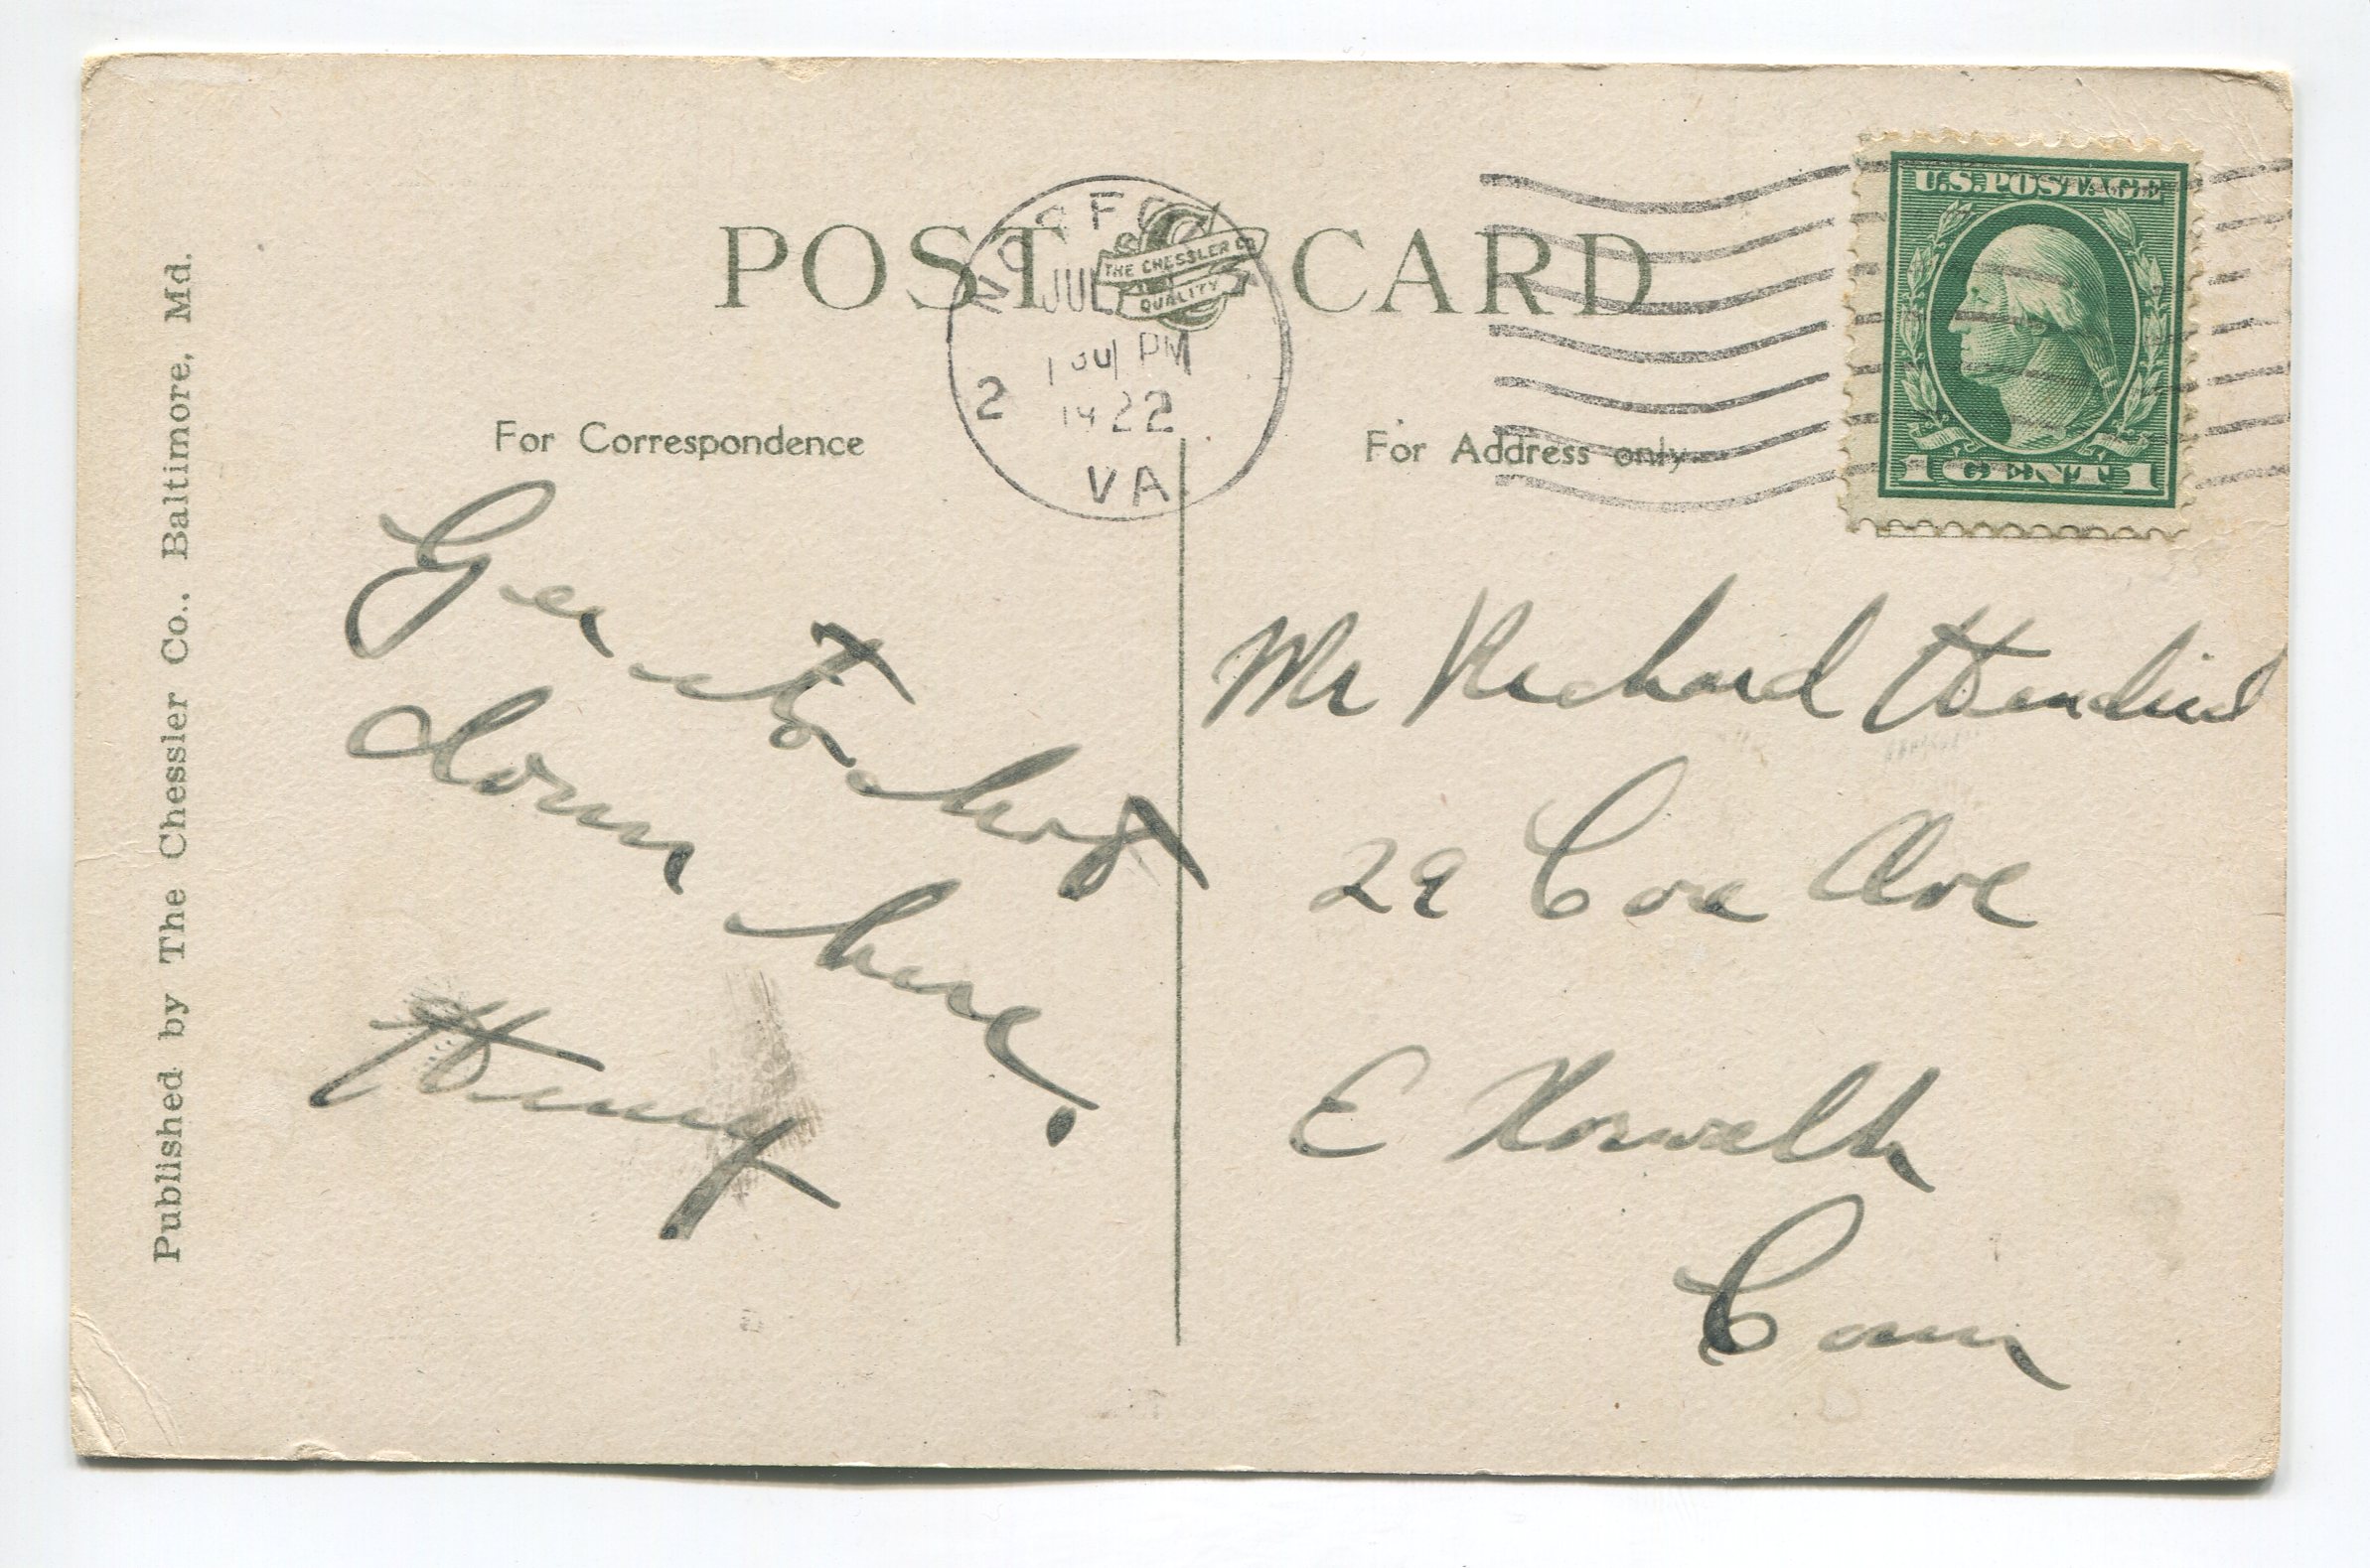 POST CARD
THE CHESSLER CO
QUALITY
NORFO
JUL
PM
2 1922
VA
U.S. POSTAGE
1 CENT 1
For Correspondence
For Address only
Published by The Chessler Co., Baltimore, Md.
Gee its hot
down here.
Henry
Mr Richard
29 Coe Ave
E Norwalk
Conn